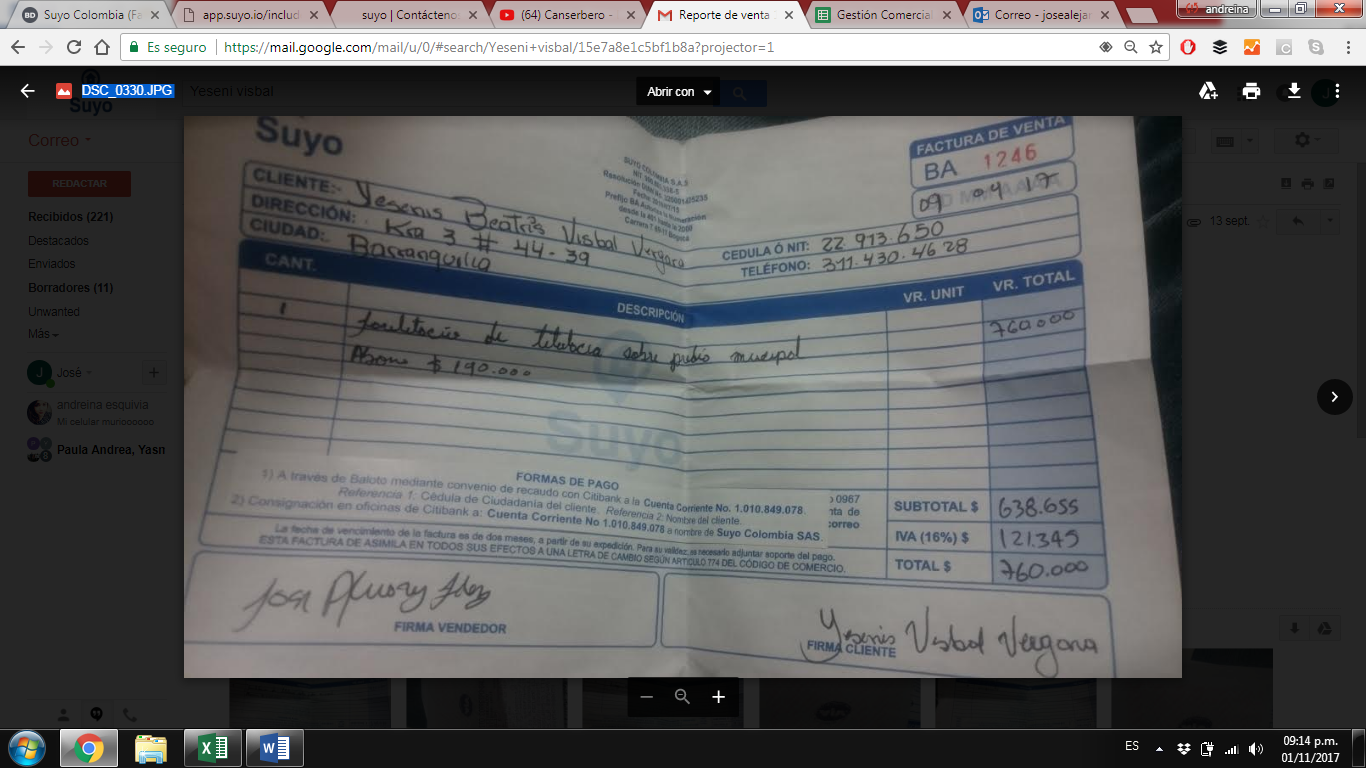 Suyo Colombia (Fa
app.suyo.io/includ
suyo | Contácteno
(64) Canserbero -
Reporte de venta
Gestión Comercial
Correo - josealejan
andreina
Es seguro
https://mail.google.com/mail/u/0/#search/Yeseni+visbal/15e7a8e1c5bf1b8a?projector=1
DSC_0330.JPG
Yeseni visbal
Abrir con
Suyo
Correo
REDACTAR
Recibidos (221)
Destacados
Enviados
Borradores (11)
Unwanted
Más
José
andreina esquivia
Mi celular murioooooo
Paula Andrea, Yasn
13 sept.
Suyo
SUYO COLOMBIA S.A.S
FACTURA DE VENTA
BA 1246
09 04 17
CLIENTE: Yesenis Beatris Visbal Vergara
DIRECCIÓN: Kra 3 # 44-39
CIUDAD: Barranquilla
CEDULA Ó NIT: 22 913.650
TELÉFONO: 311.430.4628
CANT. DESCRIPCIÓN VR. UNIT VR. TOTAL
1 facilitación de titulacia sobre predio municipal 760.000
Abono $ 190.000
Suyo
FORMAS DE PAGO
1) A través de Baloto mediante convenio de recaudo con Citibank a la Cuenta Corriente No. 1.010.849.078.
Referencia 1: Cédula de Ciudadanía del cliente. Referencia 2: Nombre del cliente.
2) Consignación en oficinas de Citibank a: Cuenta Corriente No 1.010.849.078 a nombre de Suyo Colombia SAS.
0967
ta de
correo
La fecha de vencimiento de la factura es de dos meses, a partir de su expedición. Para su validez, es necesario adjuntar soporte del pago.
ESTA FACTURA DE ASIMILA EN TODOS SUS EFECTOS A UNA LETRA DE CAMBIO SEGÚN ARTICULO 774 DEL CÓDIGO DE COMERCIO.
SUBTOTAL $ 638.655
IVA (16%) $ 121.345
TOTAL $ 760.000
FIRMA VENDEDOR
Yesenis Visbal Vergara
FIRMA CLIENTE
ES
09:14 p.m.
01/11/2017